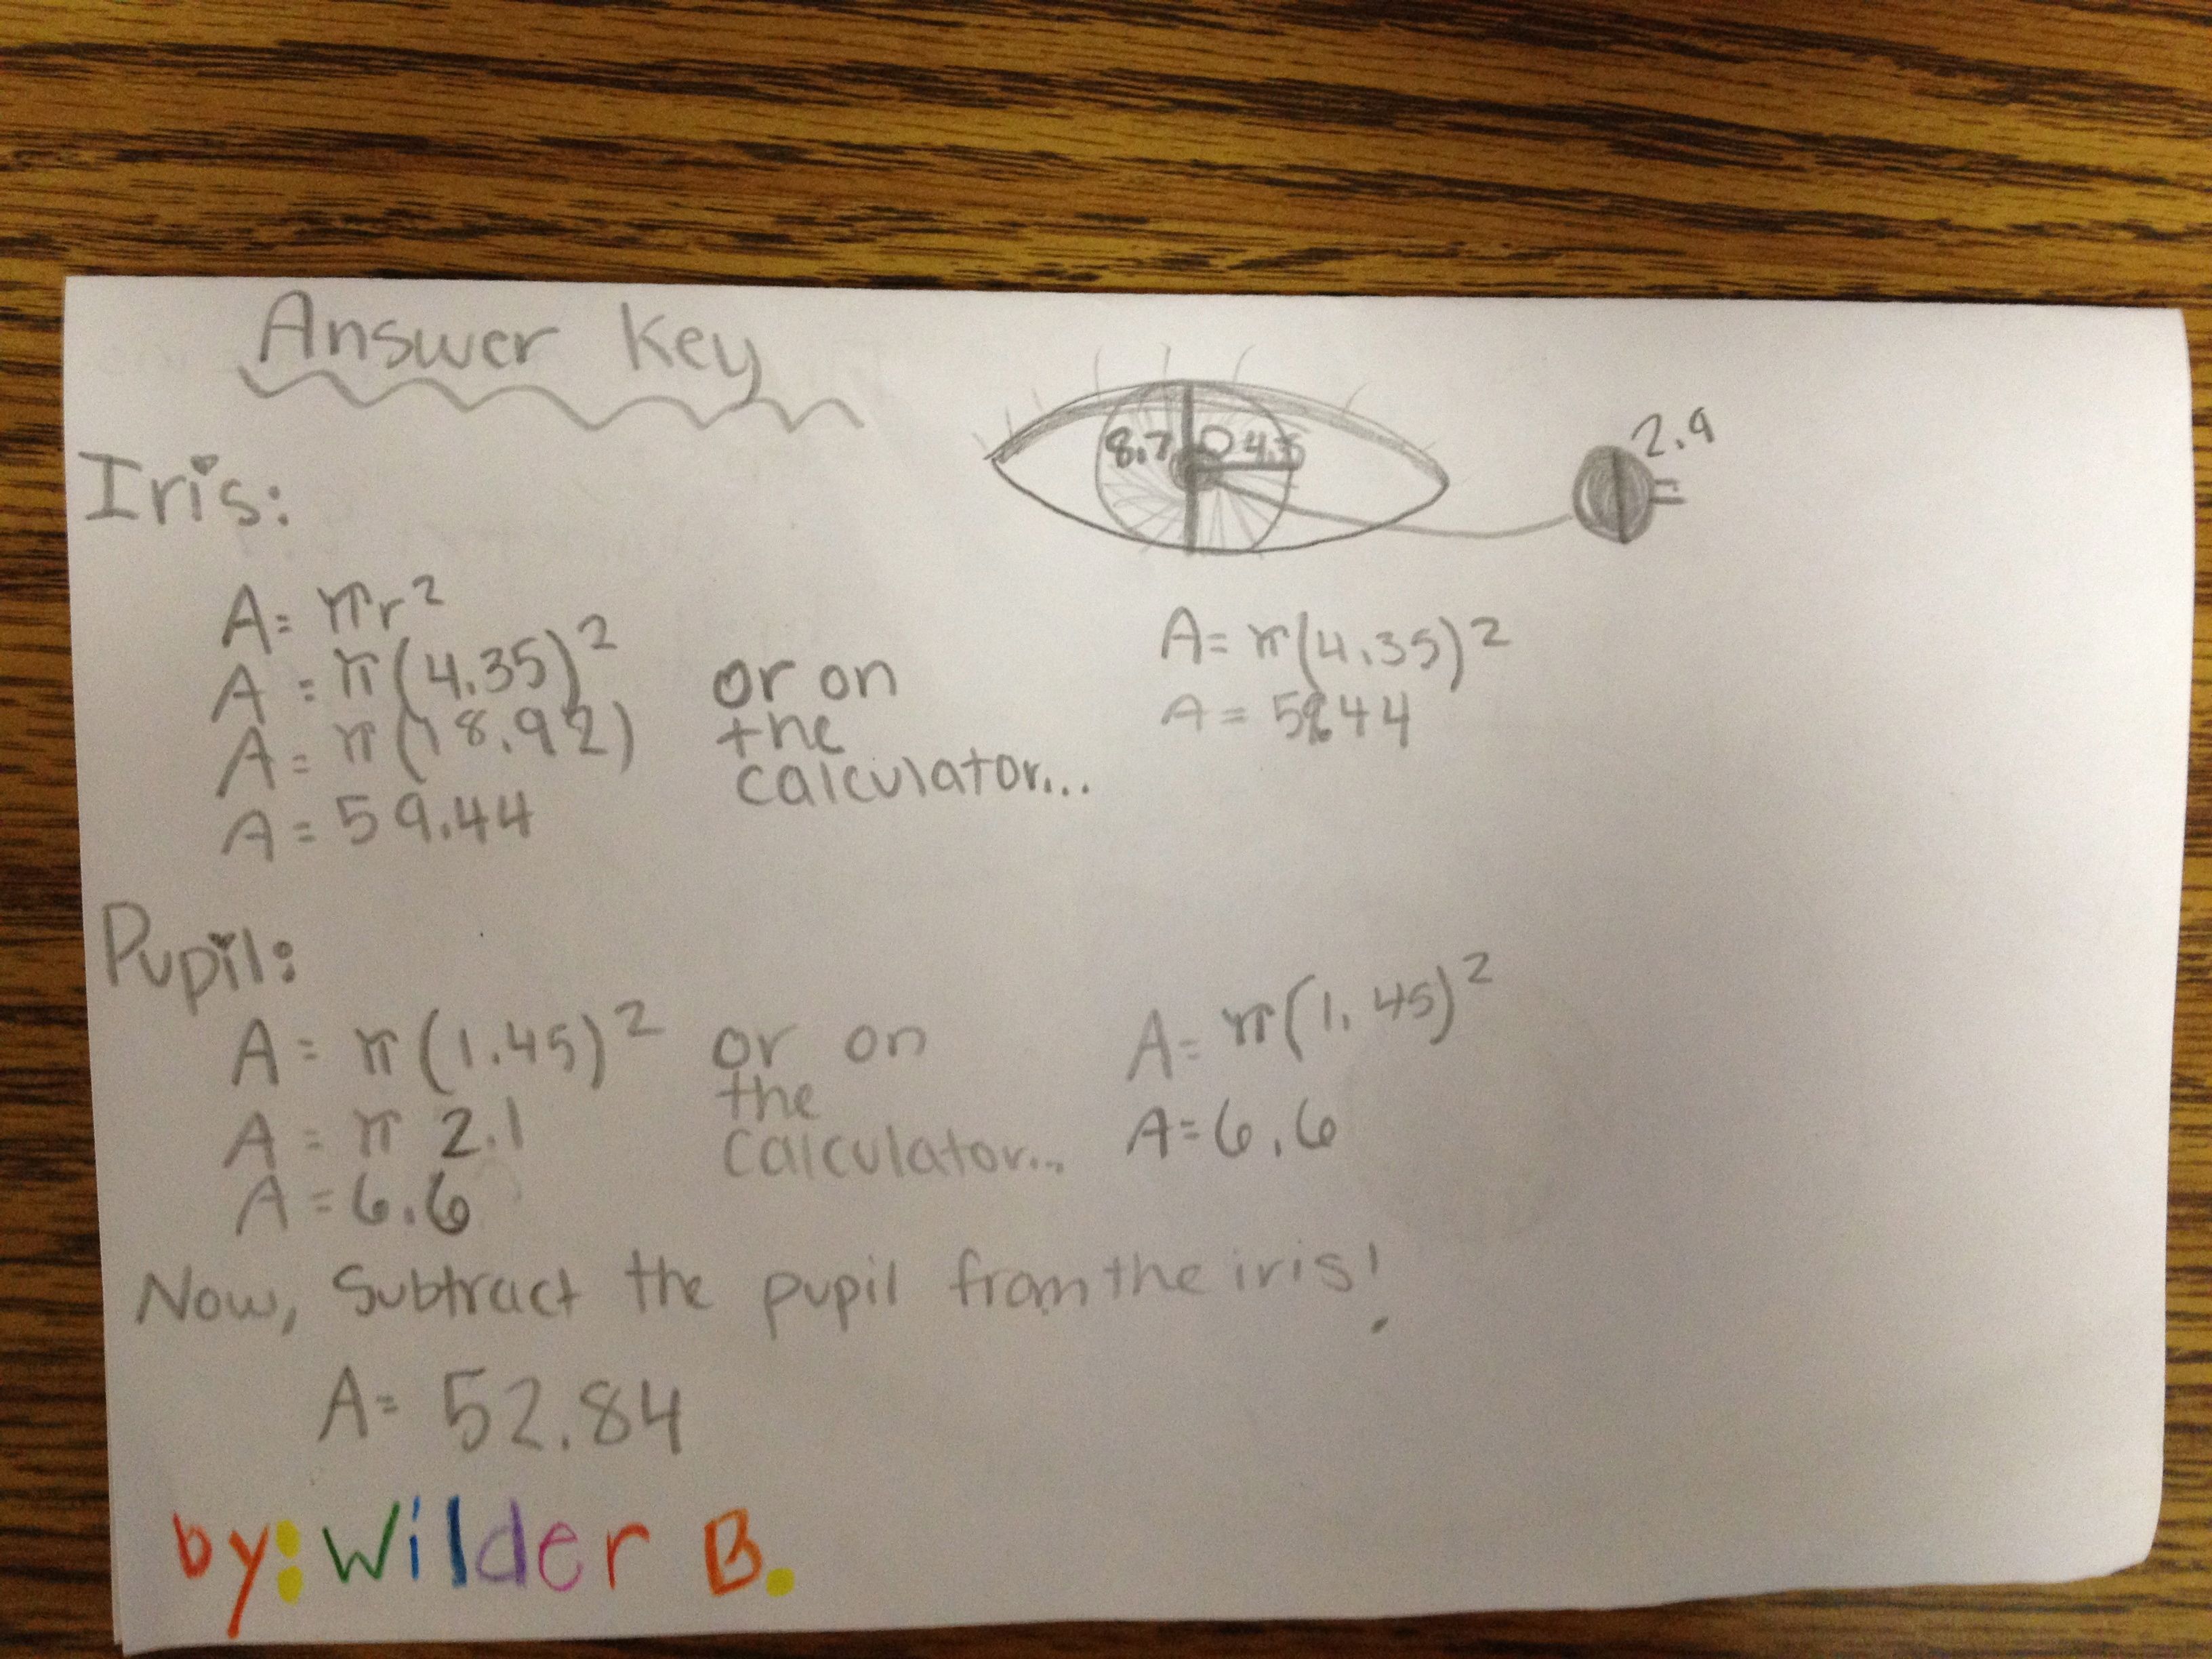 Answer Key
8.7 4.5
2.9
Iris:
A = πr²
A = π(4.35)²
A = π(18.92)
A = 59.44
or on
the
calculator...
A = π(4.35)²
A = 59.44
Pupil:
A = π(1.45)²
A = π 2.1
A = 6.6
or on
the
calculator...
A = π(1.45)²
A = 6.6
Now, subtract the pupil from the iris!
A = 52.84
by: Wilder B.